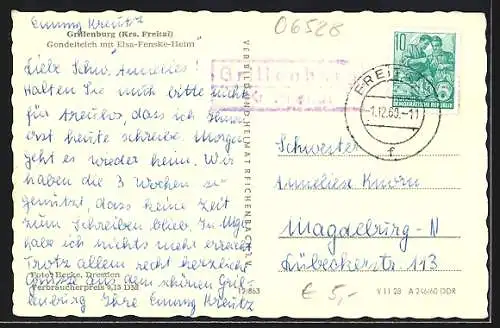 Emmy Kreutz
Grillenburg (Krs. Freital)
Gondelteich mit Elsa-Fenske-Heim
06528
Liebe Schw. Annelies!
Halten Sie mir bitte nicht
für treulos, dass ich Ihnen
erst heute schreibe. Morgen
geht es wieder heim. Wir
haben die 3 Wochen so
genützt, dass keine Zeit
zum Schreiben blieb. In
habe ich nichts mehr
Trotz allem recht herzliche
Grüsse aus dem schönen Gril-
lenburg Ihre Emmy Kreutz
Foto: Dresden
Verbraucherpreis DM
VERBILD UND HEIMAT REICHENBACH
12 863
Grillenburg
10
DEUTSCHE DEMOKRATISCHE REPUBLIK
FREITAL
-1.12.60.-11
f
Schwester
Anneliese Knorn
Magdeburg-N
Lübeckerstr. 113
€ 5,-
V 11 28 A 246/60 DDR